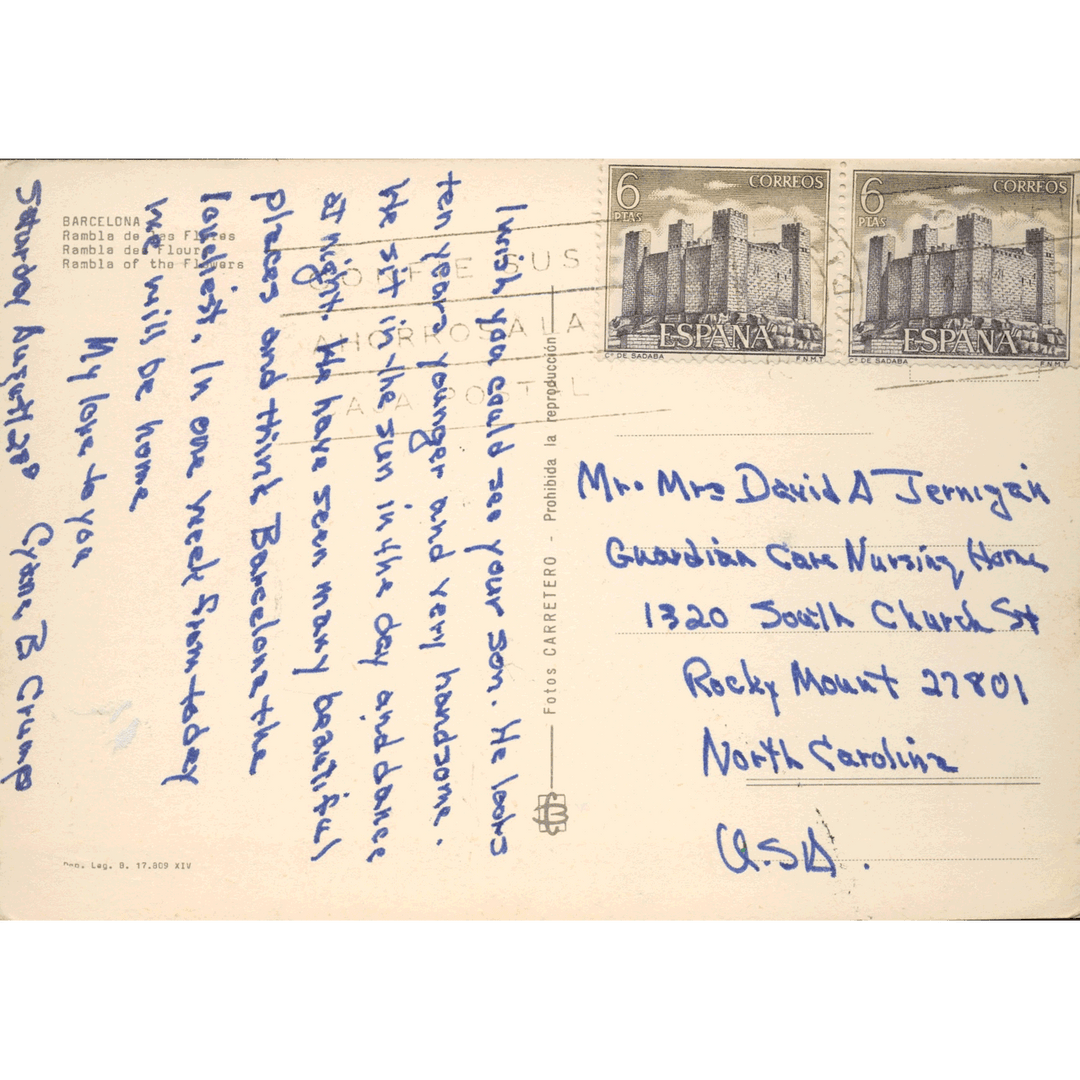 BARCELONA
Rambla de las Flores
Rambla des Flours
Rambla of the Flowers
I wish you could see your son. He looks
ten years younger and very handsome.
We sit in the sun in the day and dance
at night. We have seen many beautiful
places and think Barcelona the
loveliest. In one week from today
we will be home
My love to you
Saturday August 28
B Crump
Dep. Leg. B. 17.809 XIV
Fotos CARRETERO - Prohibida la reproducción
CONFIE SUS
AHORROS A LA
CAJA POSTAL
6 CORREOS
PTAS
ESPAÑA
Cº DE SADABA F.N.M.T.
6 CORREOS
PTAS
ESPAÑA
Cº DE SADABA F.N.M.T.
Mr. Mrs David A Jernigan
Guardian Care Nursing Home
1320 South Church St
Rocky Mount 27801
North Carolina
U.S.A.